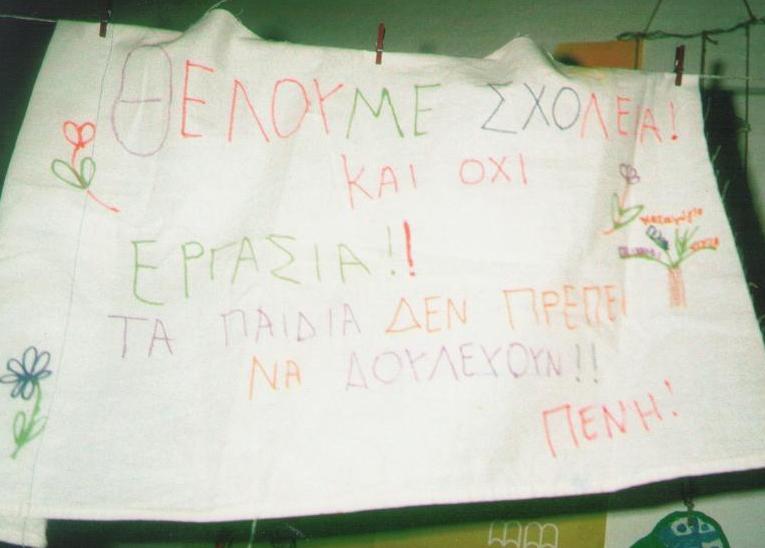 ΘΕΛΟΥΜΕ ΣΧΟΛΕΑ!
ΚΑΙ ΟΧΙ
ΕΡΓΑΣΙΑ!!
ΤΑ ΠΑΙΔΙΑ ΔΕΝ ΠΡΕΠΕΙ
ΝΑ ΔΟΥΛΕΥΟΥΝ!!
ΠΕΝΗ!